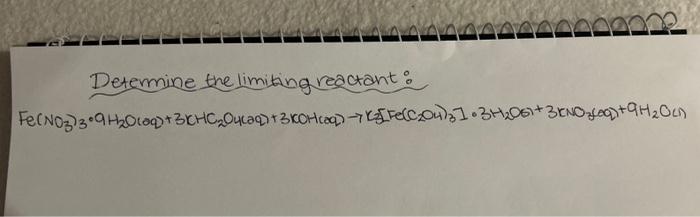 Determine the limiting reactant:
Fe(NO3)3•9H2O(aq)+3KHC2O4(aq)+3KOH(aq)→K3[Fe(C2O4)3]•3H2O(s)+3KNO3(aq)+9H2O(l)